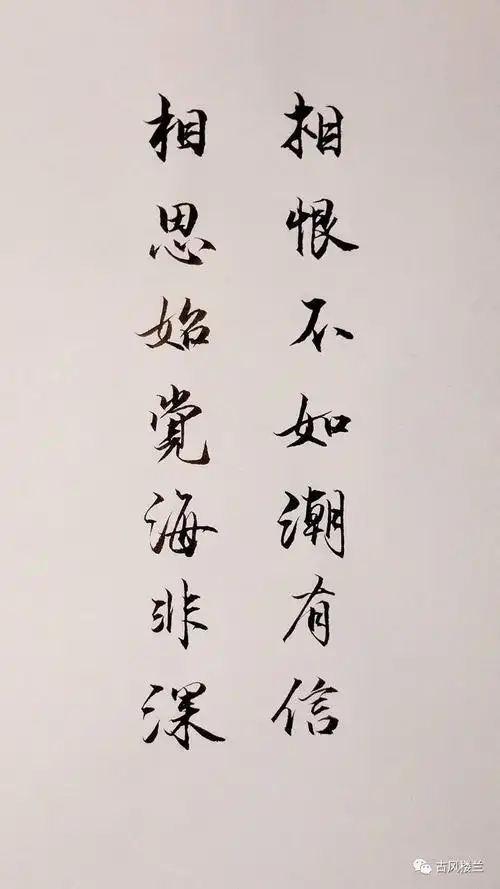 相恨不如潮有信
相思始觉海非深
古风楼兰